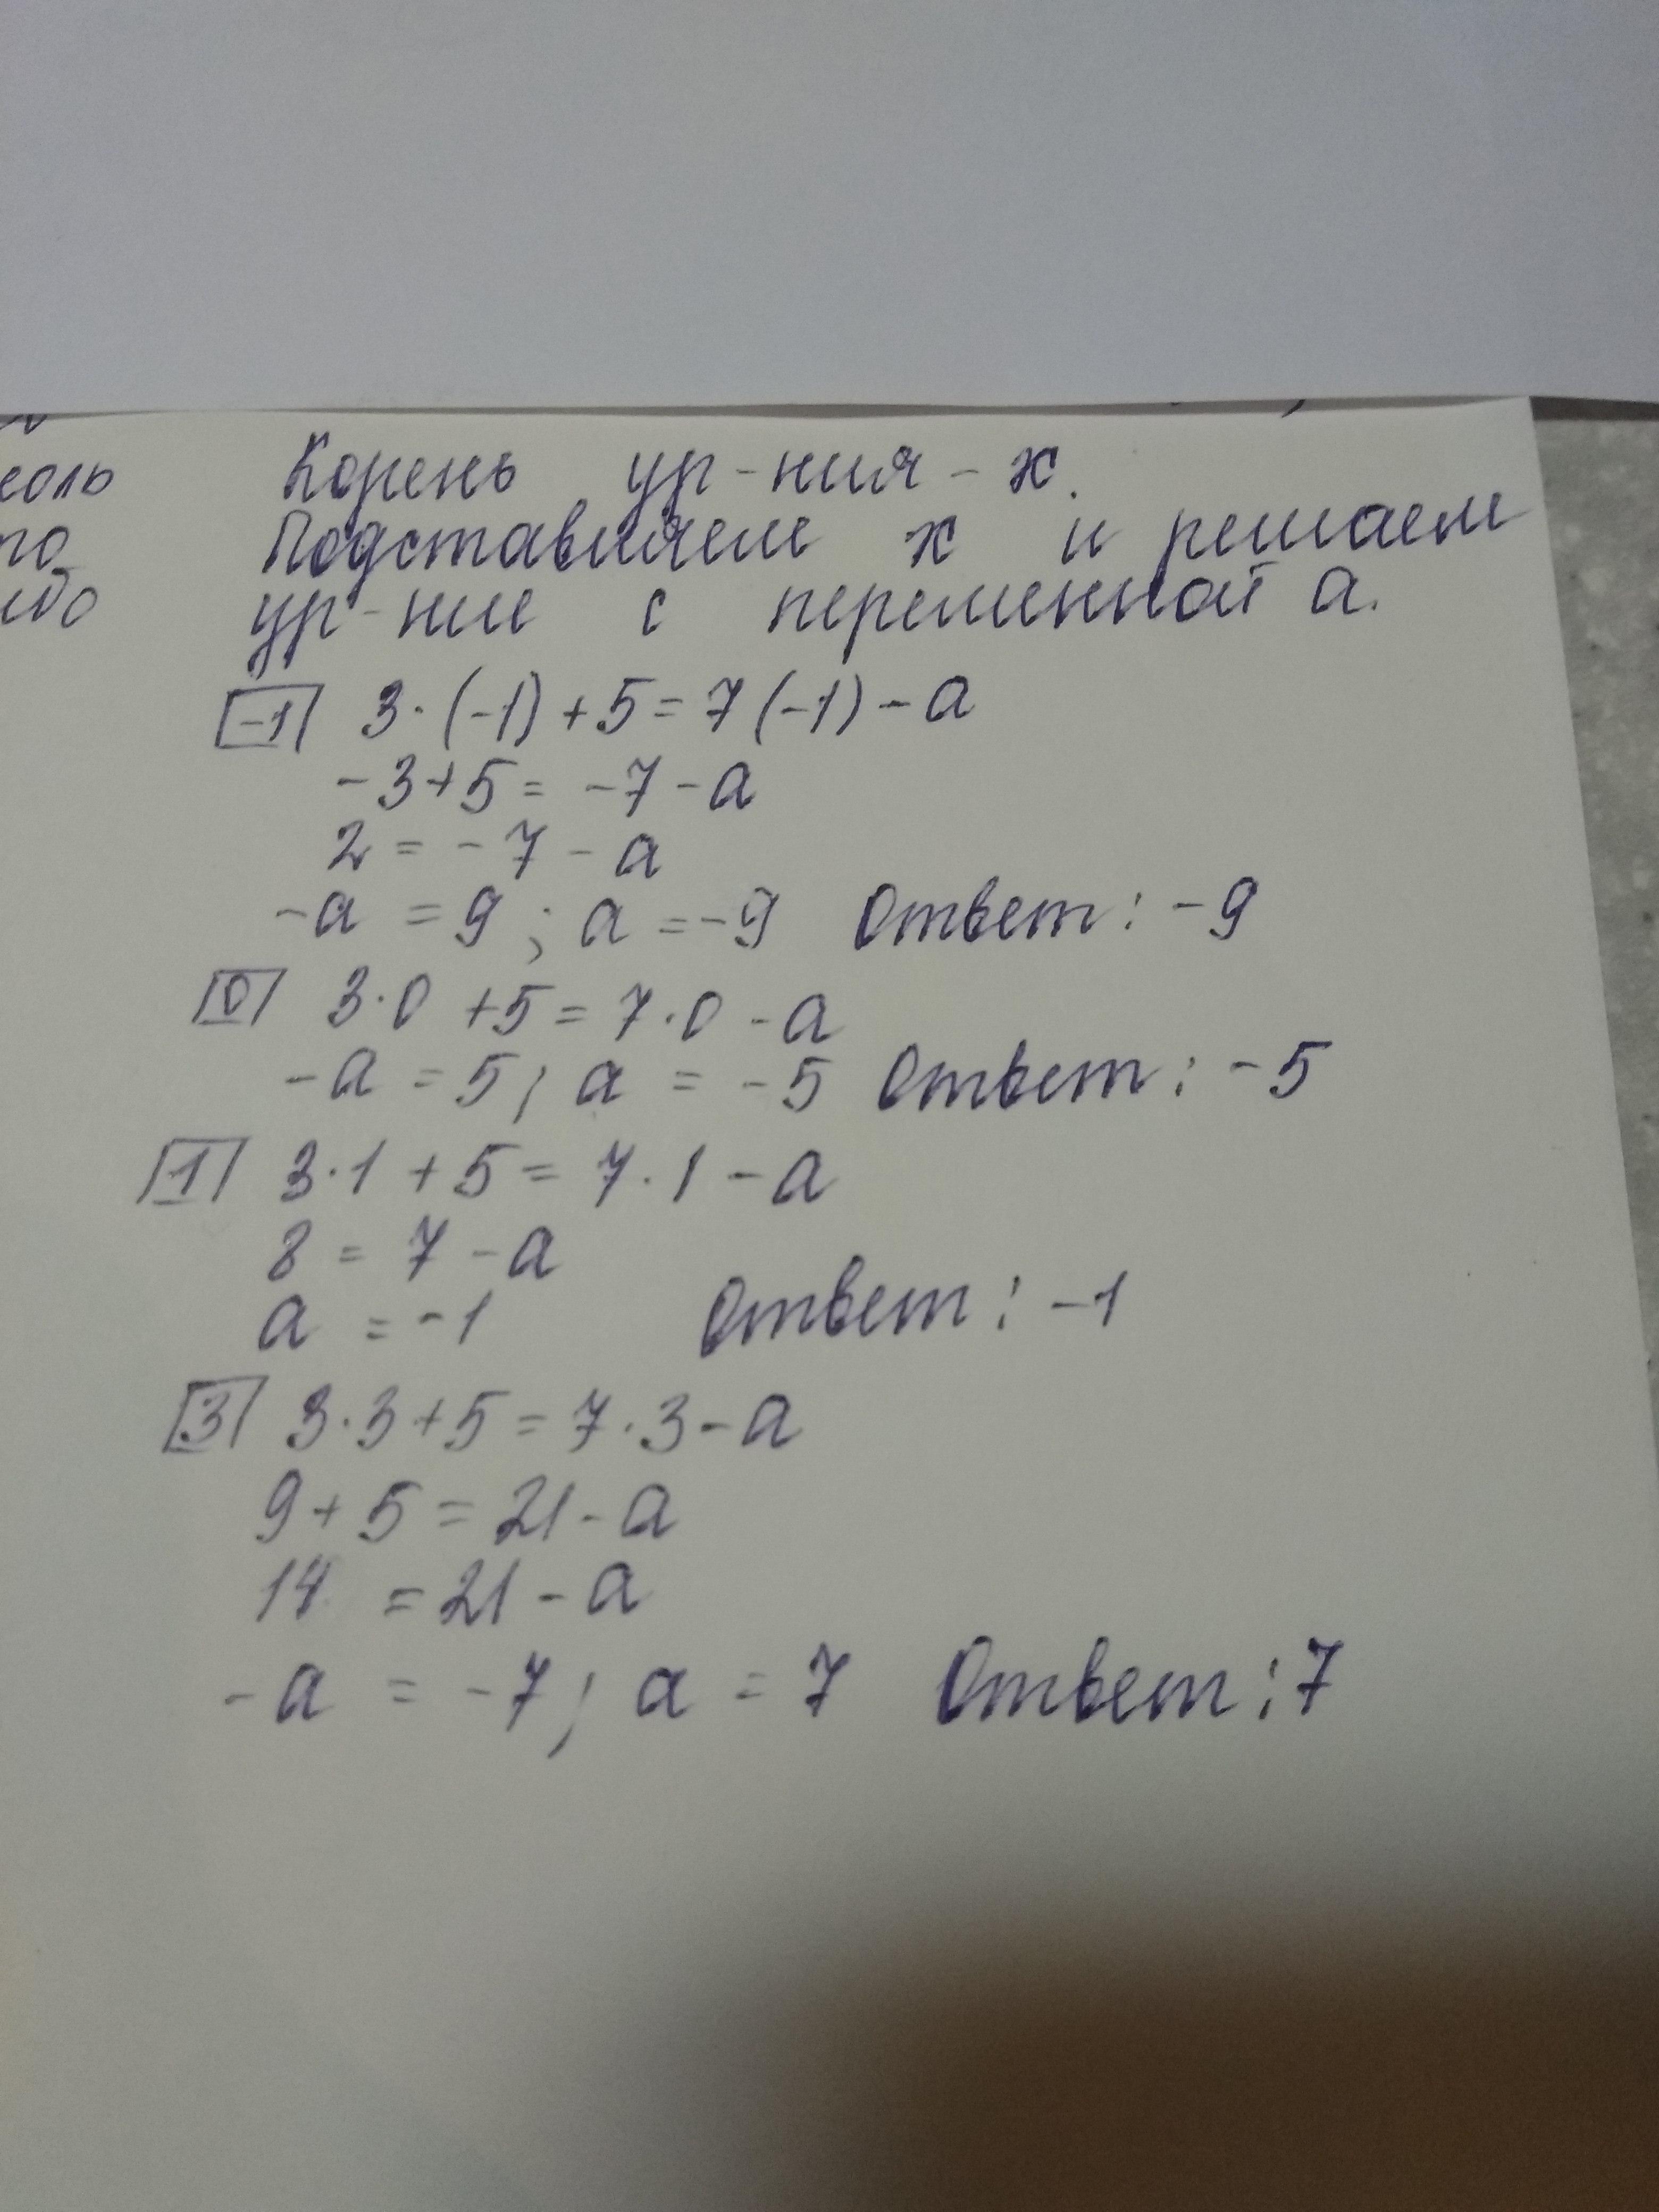 еоль
то
ибо
Корень ур-ния - х.
Подставляем х и решаем
ур-ние с переменной а.
-1 3·(-1)+5=7(-1)-а
-3+5=-7-а
2=-7-а
-а=9; а=-9 Ответ: -9
0 3·0+5=7·0-а
-а=5; а=-5 Ответ: -5
1 3·1+5=7·1-а
8=7-а
а=-1 Ответ: -1
3 3·3+5=7·3-а
9+5=21-а
14=21-а
-а=-7; а=7 Ответ: 7